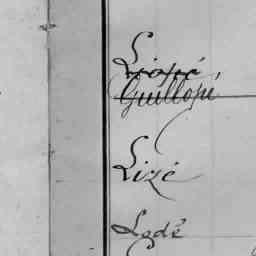 Guillopé
Lizé
Lodé